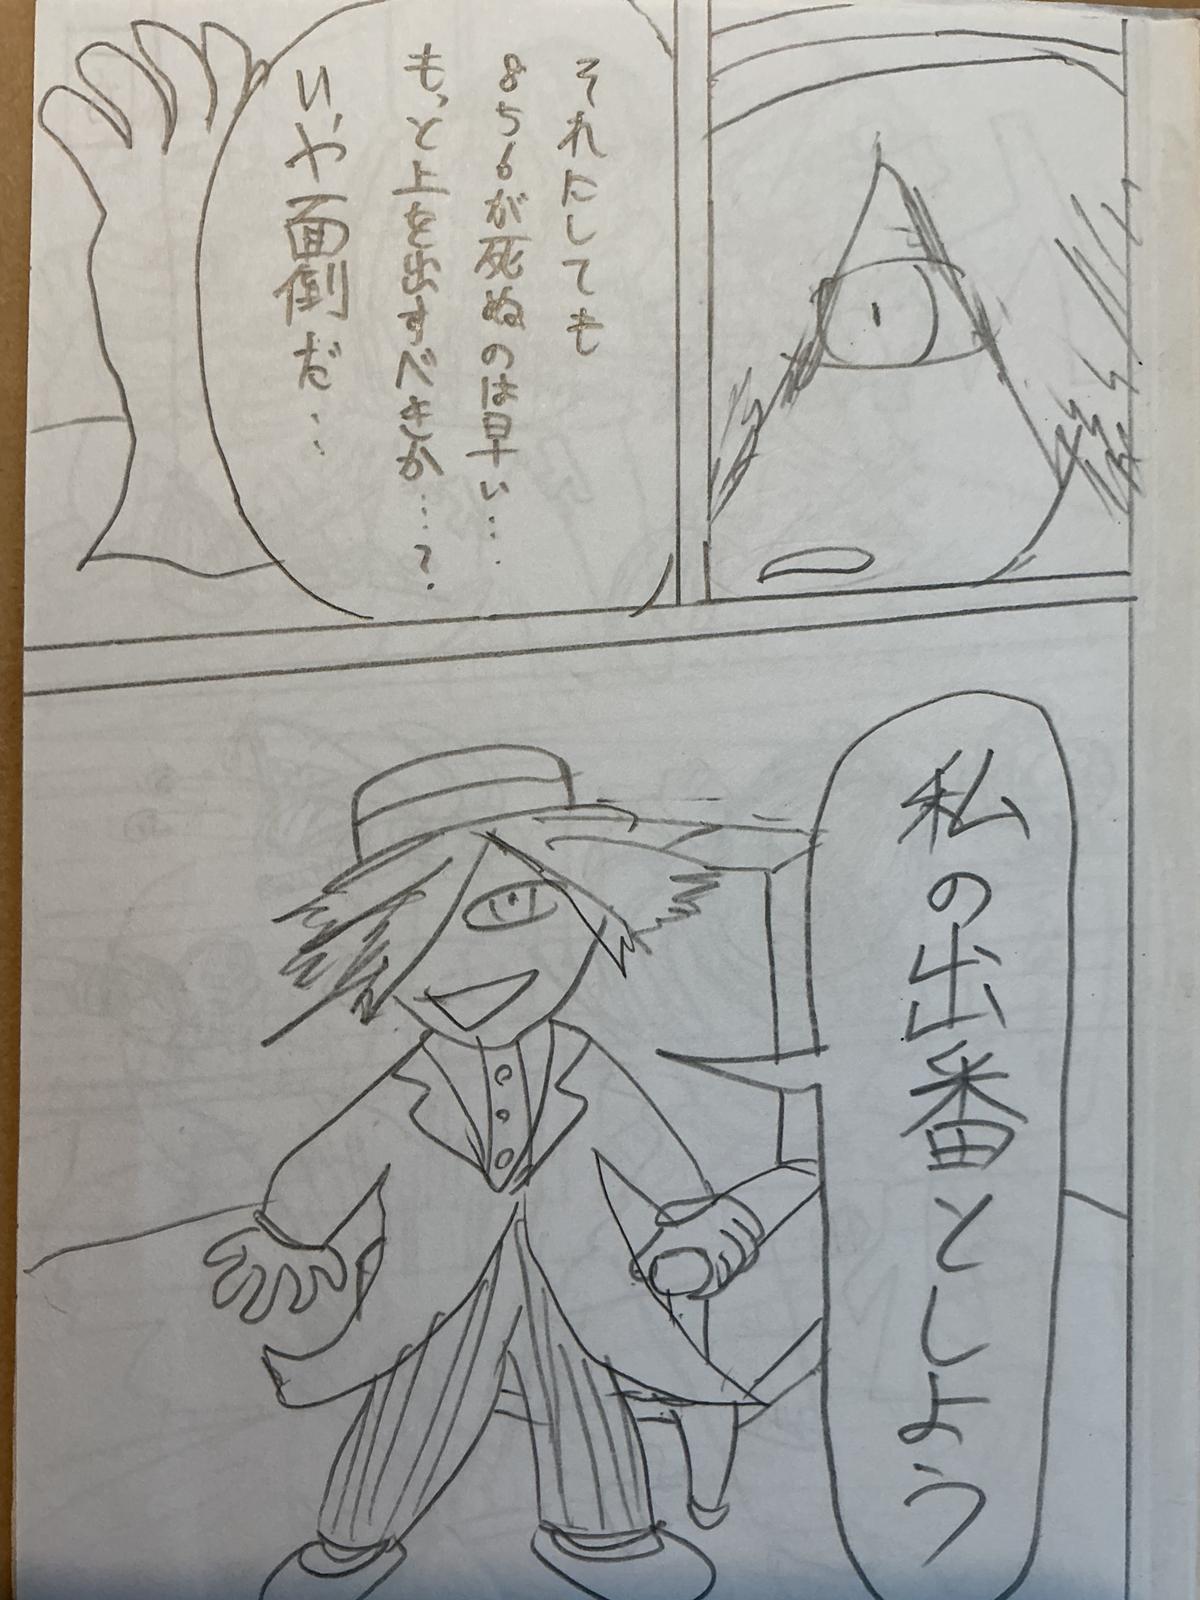 それにしても
856が死ぬのは早い…
もっと上を出すべきか…?
いや面倒だ…
私の出番としよう